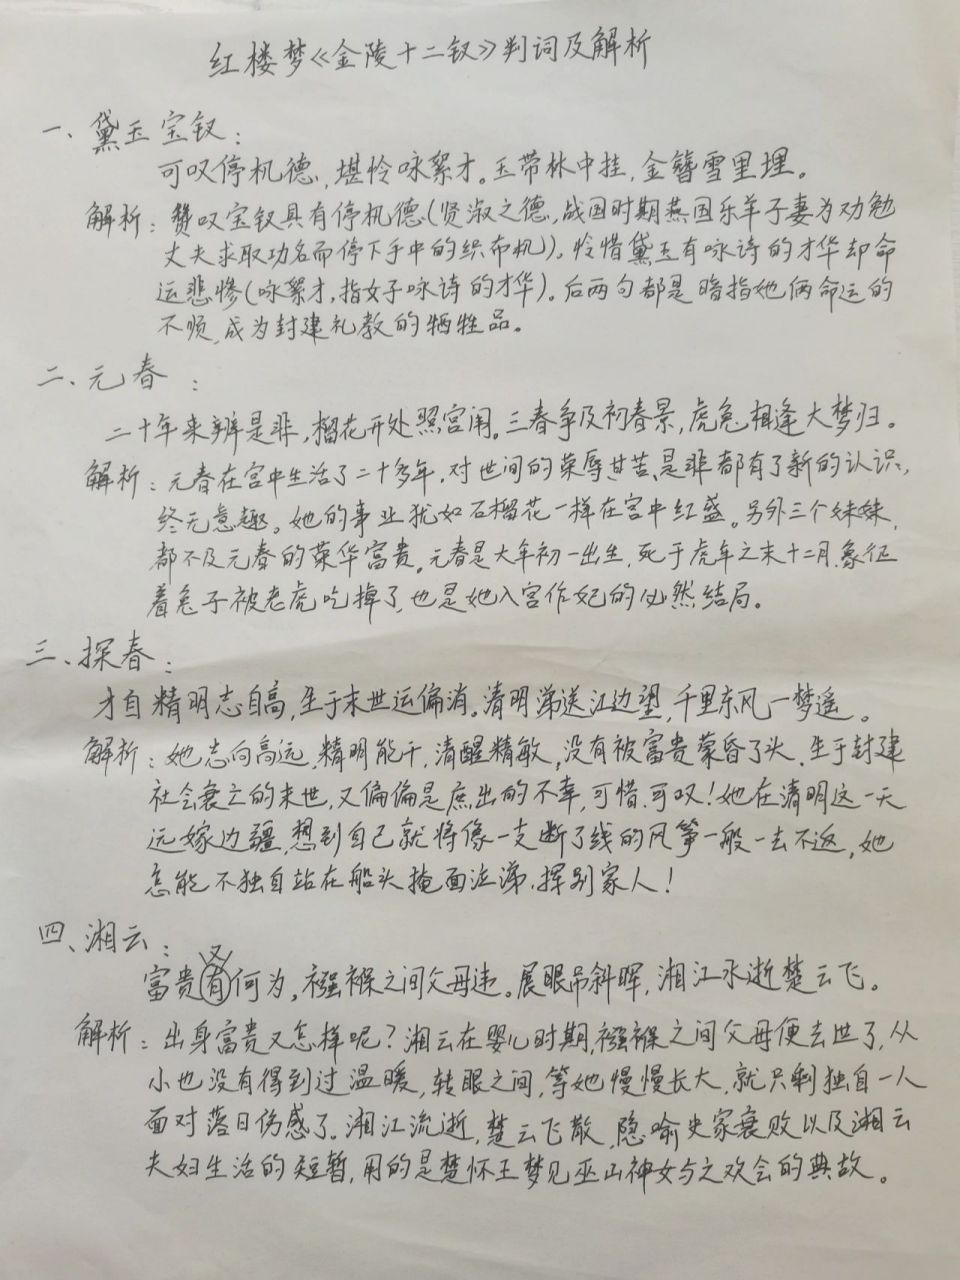 红楼梦《金陵十二钗》判词及解析
一、黛玉宝钗：
可叹停机德，堪怜咏絮才。玉带林中挂，金簪雪里埋。
解析：赞叹宝钗具有停机德（贤淑之德，战国时期燕国乐羊子妻为劝勉
丈夫求取功名而停下手中的织布机）。怜惜黛玉有咏诗的才华却命
运悲惨（咏絮才，指女子咏诗的才华）。后两句都是暗指她俩命运的
不顺，成为封建礼教的牺牲品。
二、元春：
二十年来辨是非，榴花开处照宫闱。三春争及初春景，虎兔相逢大梦归。
解析：元春在宫中生活了二十多年，对世间的荣辱、甘苦、是非都有了新的认识，
终无意趣。她的事业犹如石榴花一样在宫中红盛。另外三个妹妹，
都不及元春的荣华富贵。元春是大年初一出生，死于虎年之末十二月，象征
着兔子被老虎吃掉了，也是她入宫作妃的必然结局。
三、探春：
才自精明志自高，生于末世运偏消。清明涕送江边望，千里东风一梦遥。
解析：她志向高远，精明能干，清醒精敏，没有被富贵蒙昏了头，生于封建
社会衰亡的末世，又偏偏是庶出的不幸，可惜、可叹！她在清明这一天
远嫁边疆，想到自己就将像一支断了线的风筝一般一去不返，她
怎能不独自站在船头掩面泣涕，挥别家人！
四、湘云：
又
富贵有何为，襁褓之间父母违。展眼吊斜晖，湘江水逝楚云飞。
解析：出身富贵又怎样呢？湘云在婴儿时期，襁褓之间父母便去世了，从
小也没有得到过温暖，转眼之间，等她慢慢长大，就只剩独自一人
面对落日伤感了。湘江流逝，楚云飞散，隐喻史家衰败以及湘云
夫妇生活的短暂，用的是楚怀王梦见巫山神女与之欢会的典故。